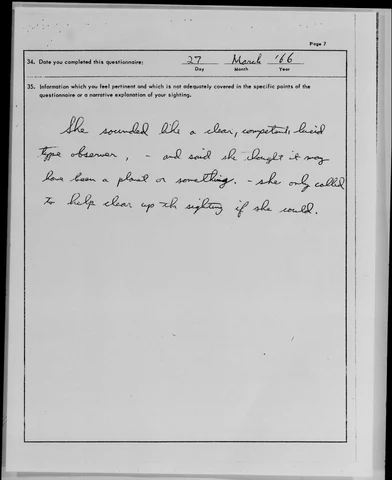 Page 7
34. Date you completed this questionnaire: 27 March '66
Day Month Year
35. Information which you feel pertinent and which is not adequately covered in the specific points of the
questionnaire or a narrative explanation of your sighting.
She sounded like a clear, competent, lucid
type observer, - and said she thought it may
have been a planet or something. - she only called
to help clear up th sighting if she could.